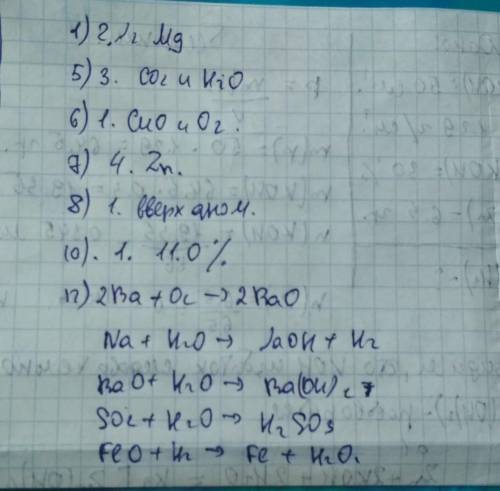 1) 2. 2г Mg
5) 3. CO2 и H2O
6) 1. CuO и O2.
7) 4. Zn.
8) 1. вверх дном.
10). 1. 11.0%
12) 2Ba + O2 → 2BaO
Na + H2O → NaOH + H2
BaO + H2O → Ba(OH)2
SO2 + H2O → H2SO3
FeO + H2 → Fe + H2O.